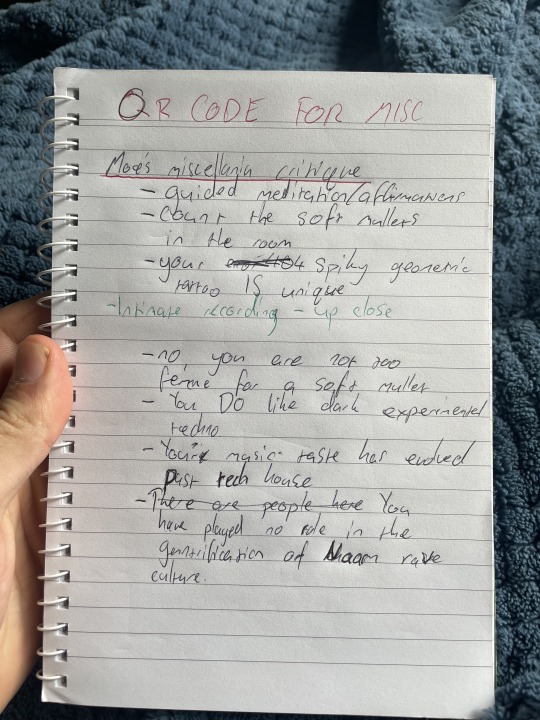 QR CODE FOR MISC
miscellania critique
- guided meditation/affirmations
- Count the soft mullets
in the room
- your Spiky geometric
tattoo IS unique
- Intimate recording - up close
- no, you are not too
femme for a soft mullet
- You DO like dark experimental
techno
- Your music taste has evolved
past tech house
- There are people here You
have played no role in the
gentrification of Naarm rave
culture.